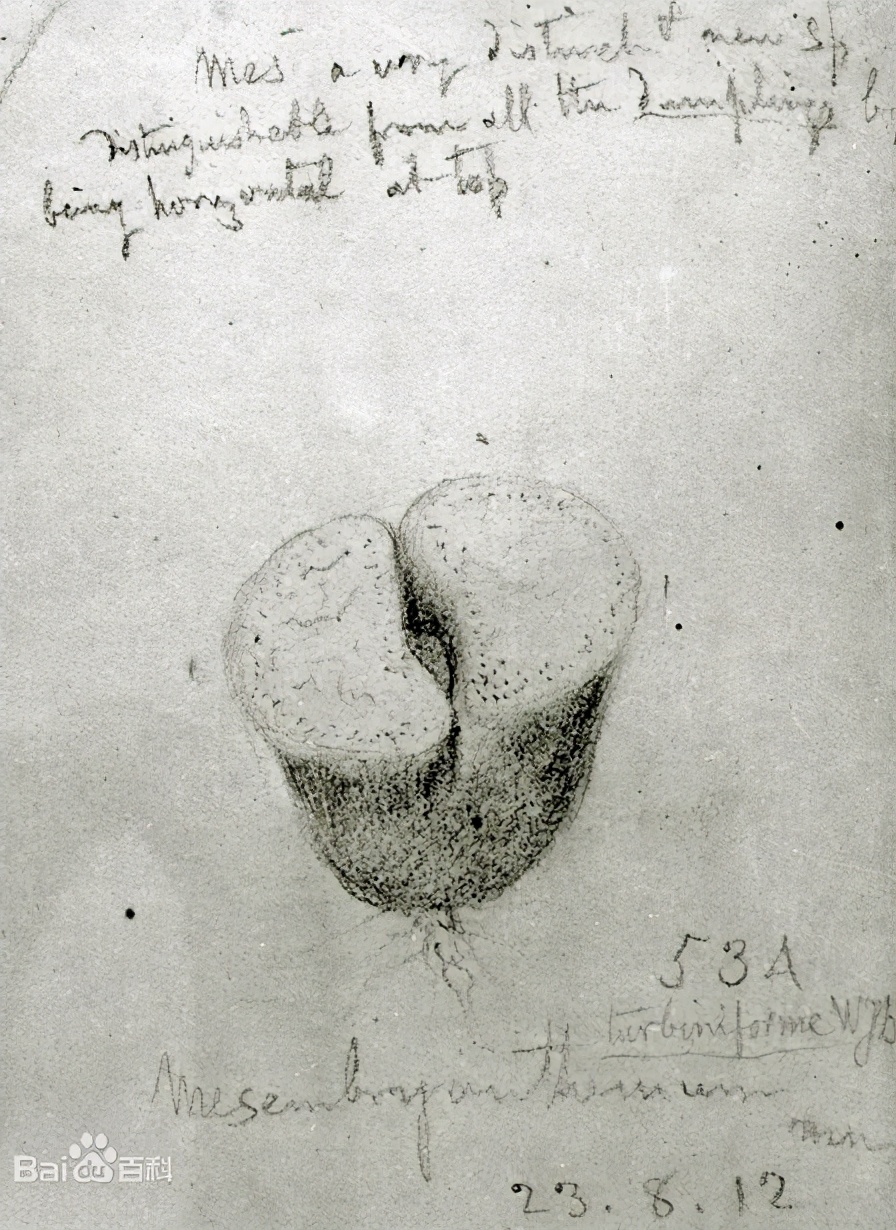 Mes a very distinct new sp
distinguishable from all the Dumplings by
being horizontal at top
53A
turbiniforme WJB
Mesembryanthemum
23.8.12
Baidu百科